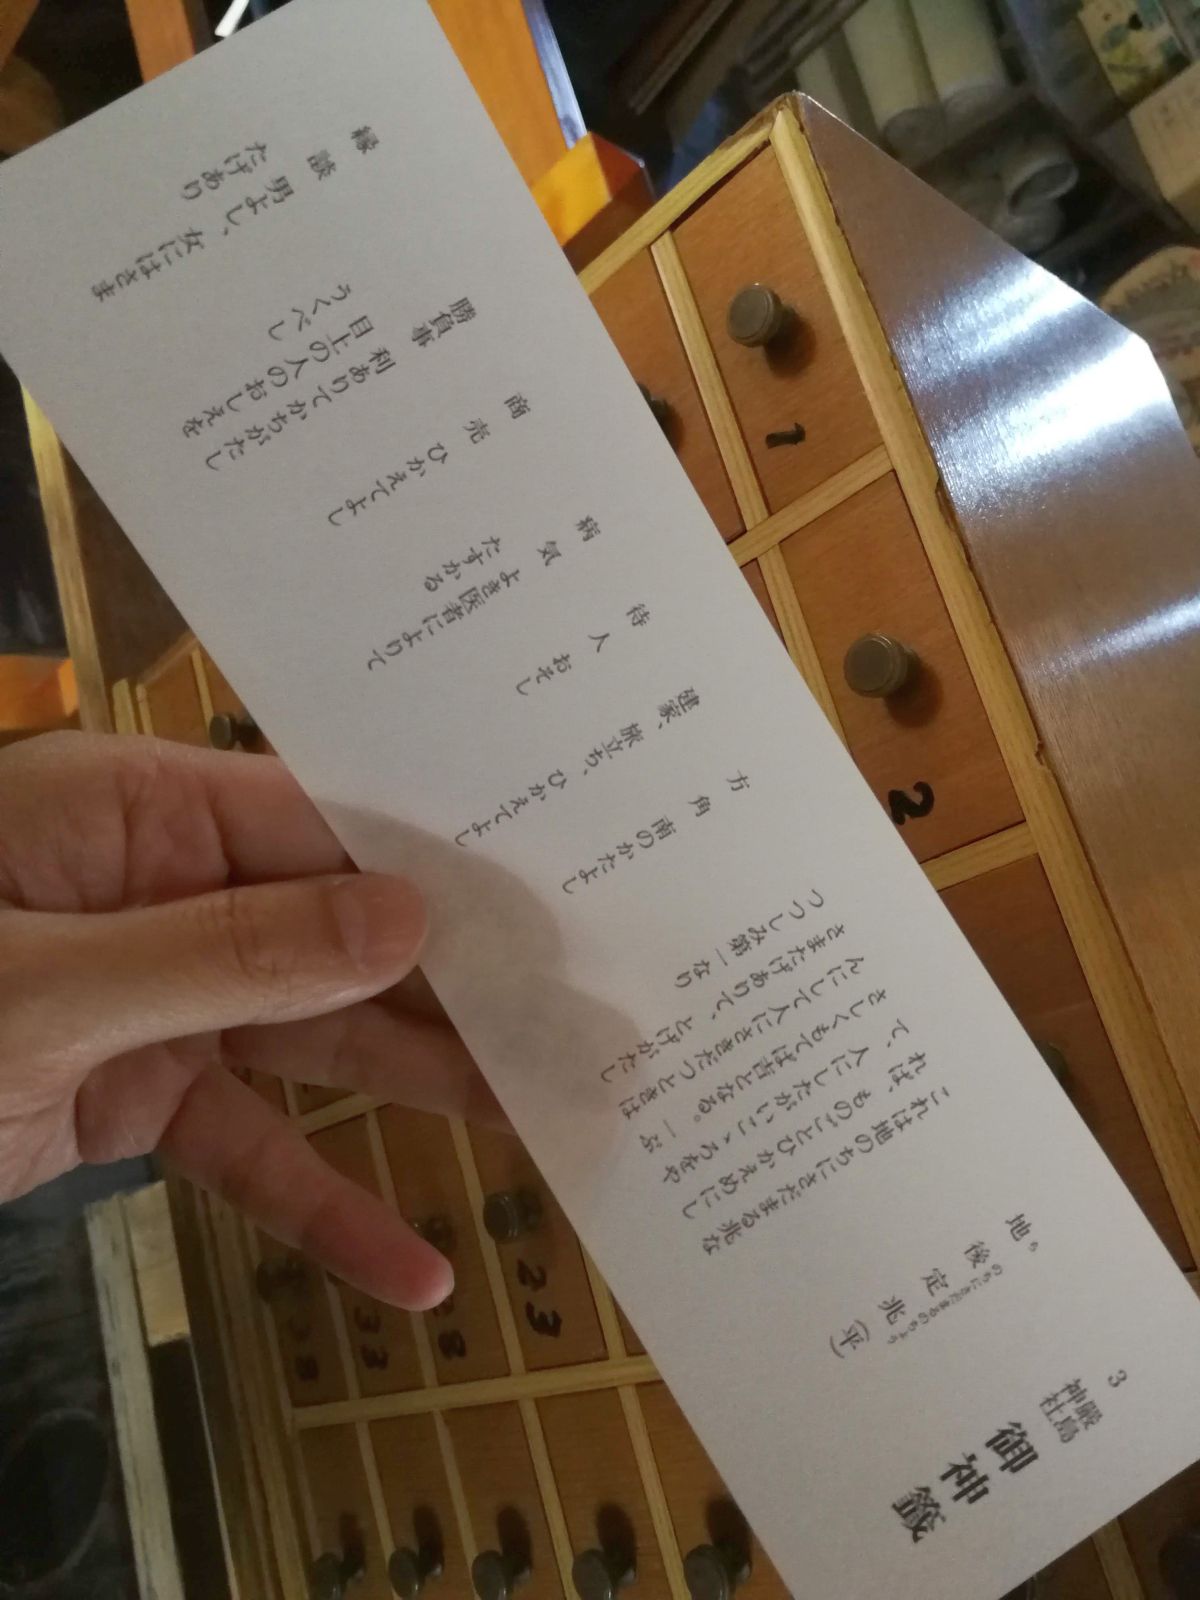 3
厳島
神社
御神籤
地後定兆(平)
ち のちにさだまるのちょう
これは地のちにさだまる兆な
れば、ものごとひかえめにし
て、人にしたがいこゝろをや
さしくもてば吉となる。一ぶ
んにして人にさきだつときは
さまたげありて、とげがたし
つつしみ第一なり
方角 南のかたよし
建家、旅立ち、ひかえてよし
待人 おそし
病気 よき医者によりて
たすかる
商売 ひかえてよし
勝負事 利ありてかちがたし
目上の人のおしえを
うくべし
縁談 男よし、女にはさま
たげあり
1
2
23
28
33
38